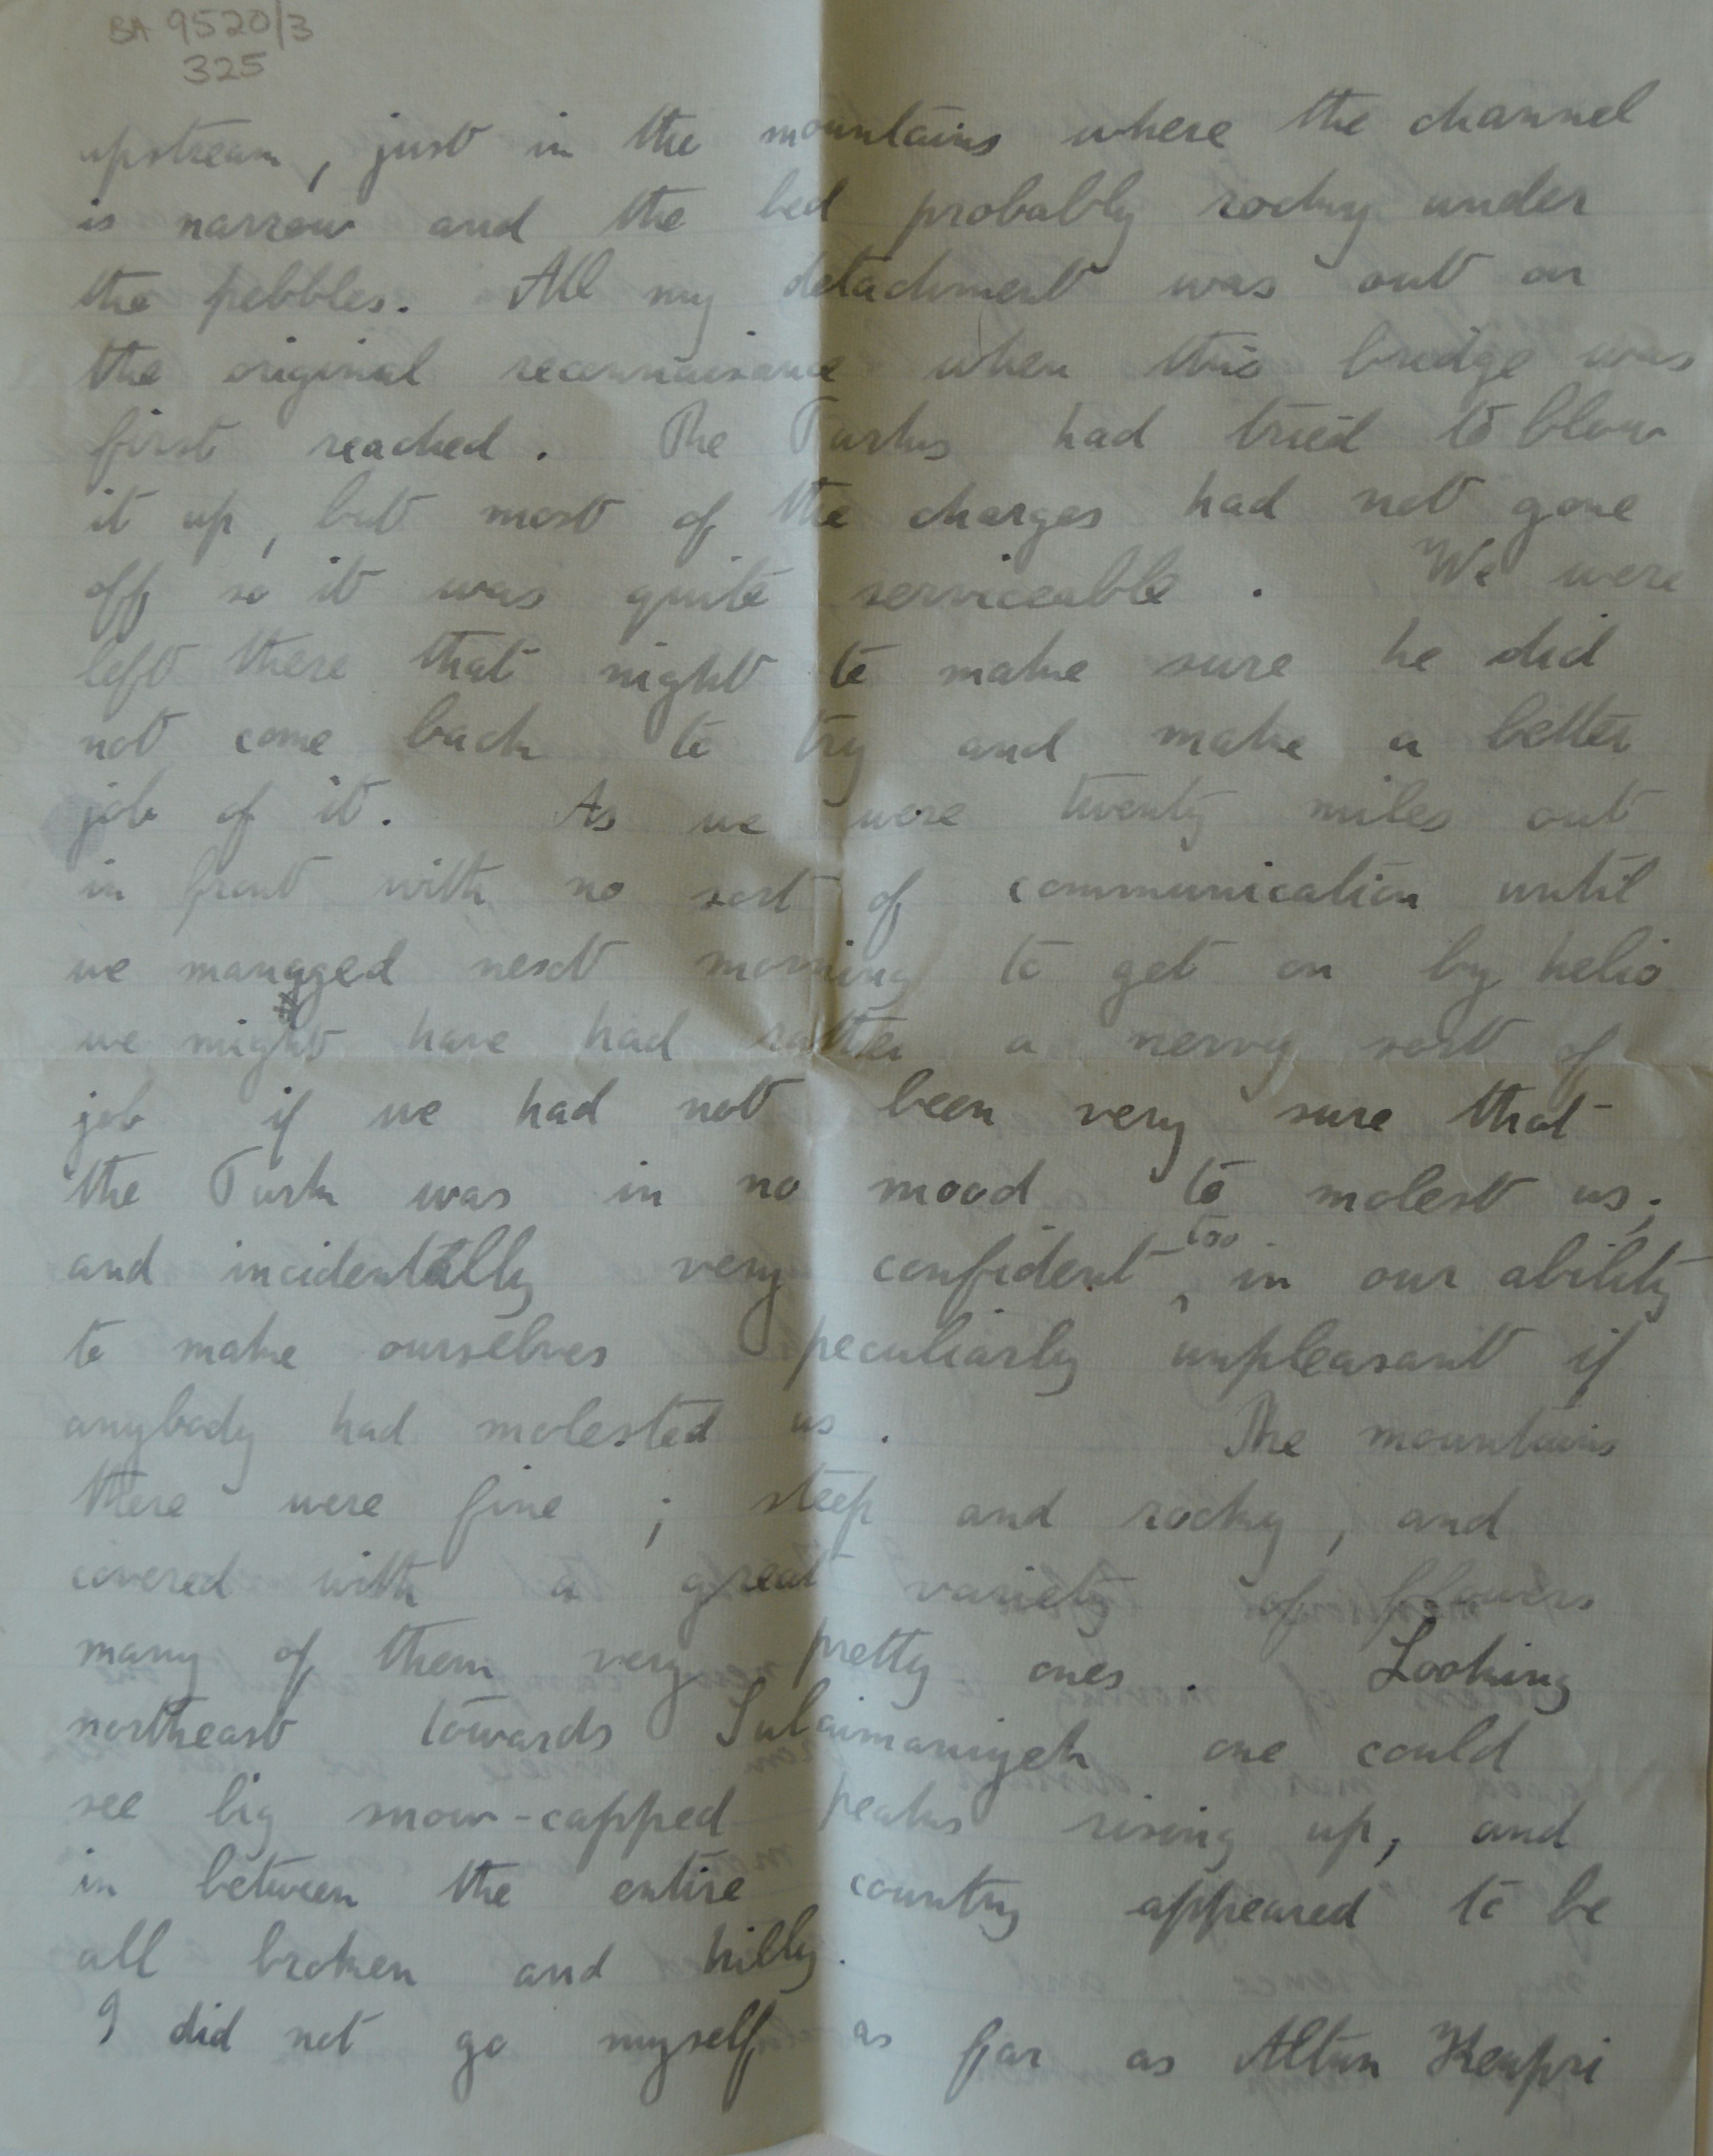 BA 9520/3
325
upstream, just in the mountains where the channel
is narrow and the bed probably rocky under
the pebbles. All my detachment was out on
the original reconnaisance when this bridge was
first reached. The Turks had tried to blow
it up, but most of the charges had not gone
off so it was quite serviceable. We were
left there that night to make sure he did
not come back to try and make a better
job of it. As we were twenty miles out
in front with no sort of communication until
we managed next morning to get on by helio
we might have had rather a nervy sort of
job if we had not been very sure that
the Turk was in no mood to molest us;
and incidentally very confident too in our ability
to make ourselves peculiarly unpleasant if
anybody had molested us. The mountains
there were fine; steep and rocky, and
covered with a great variety of flowers
many of them very pretty ones. Looking
northeast towards Sulaimaniyeh one could
see big snow-capped peaks rising up, and
in between the entire country appeared to be
all broken and hilly.
I did not go myself as far as Altun Keupri